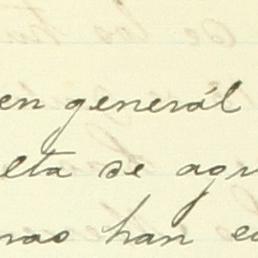 en generál
elta de agu
nas han e